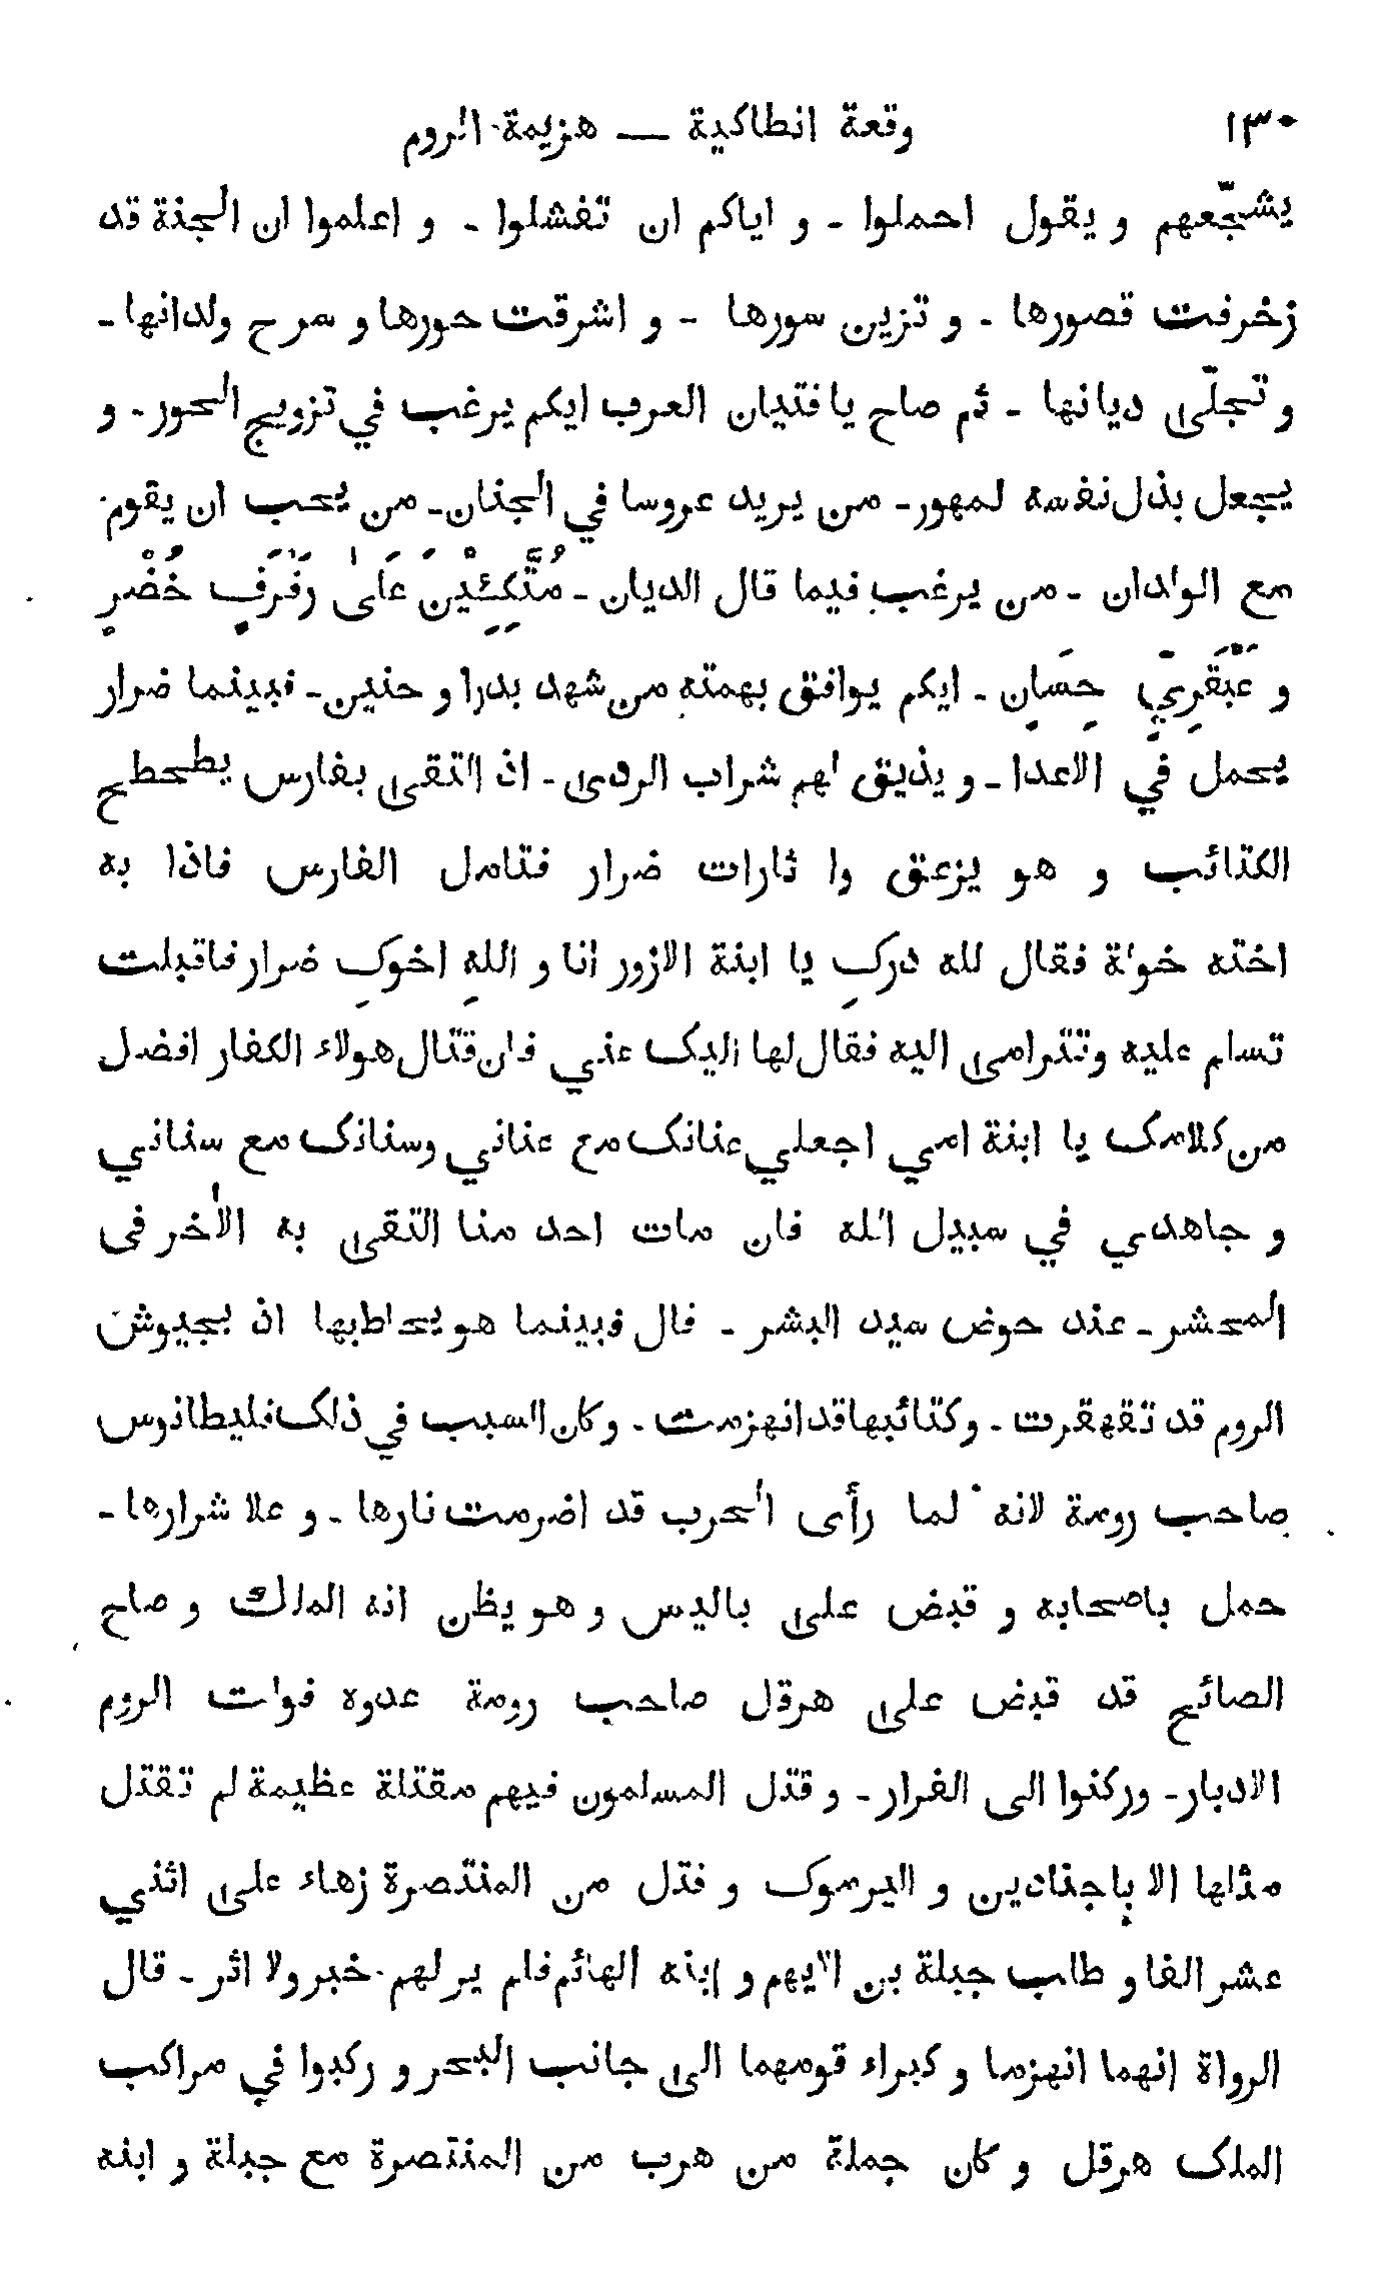 ١٣٠ وقعة انطاكية — هزيمة الروم
يشجّعهم و يقول احملوا - و اياكم ان تفشلوا - و اعلموا ان الجنة قد
زخرفت قصورها - و تزين سورها - و اشرقت حورها و سرح ولدانها -
و تجلّى ديانها - ثم صاح يا فتيان العرب ايكم يرغب في تزويج الحور - و
يجعل بذل نفسه لمهور - من يريد عروسا في الجنان - من يحب ان يقوم
مع الولدان - من يرغب فيما قال الديان - مُتَّكِئِيْنَ عَلىٰ رَفْرَفٍ خُضْرٍ
و عَبْقَرِيٍّ حِسَانٍ - ايكم يوافق بهمته من شهد بدرا و حنين - فبينما ضرار
يحمل في الاعدا - و يذيق لهم شراب الردى - اذ التقى بفارس يطحطح
الكتائب و هو يزعق وا ثارات ضرار فتامل الفارس فاذا به
اخته خولة فقال لله درکِ يا ابنة الازور انا و اللهِ اخوکِ ضرار فاقبلت
تسلم عليه وتترامى اليه فقال لها اليک عني فان قتال هولاء الكفار افضل
من كلامک يا ابنة امي اجعلي عنانک مع عناني وسنانک مع سناني
و جاهدي في سبيل الله فان مات احد منا التقى به الأخر فى
المحشر - عند حوض سيد البشر - قال فبينما هو يخاطبها اذ بجيوش
الروم قد تقهقرت - و كتائبها قد انهزمت - و كان السبب في ذلک فليطانوس
صاحب رومة لانه لما رأى الحرب قد اضرمت نارها - و علا شرارها -
حمل باصحابه و قبض على باليس و هو يظن انه الملك و صاح
الصائح قد قبض على هرقل صاحب رومة عدوه فولت الروم
الادبار - وركنوا الى الفرار - و قتل المسلمون فيهم مقتلة عظيمة لم تقتل
مثلها الا بِاجنادين و اليرموک و قتل من المنتصرة زهاء على اثني
عشر الفا و طلب جبلة بن الايهم و ابنه الهائم فلم ير لهم خبر ولا اثر - قال
الرواة انهما انهزما و كبراء قومهما الى جانب البحر و ركبوا في مراكب
الملک هرقل و كان جملة من هرب من المنتصرة مع جبلة و ابنه